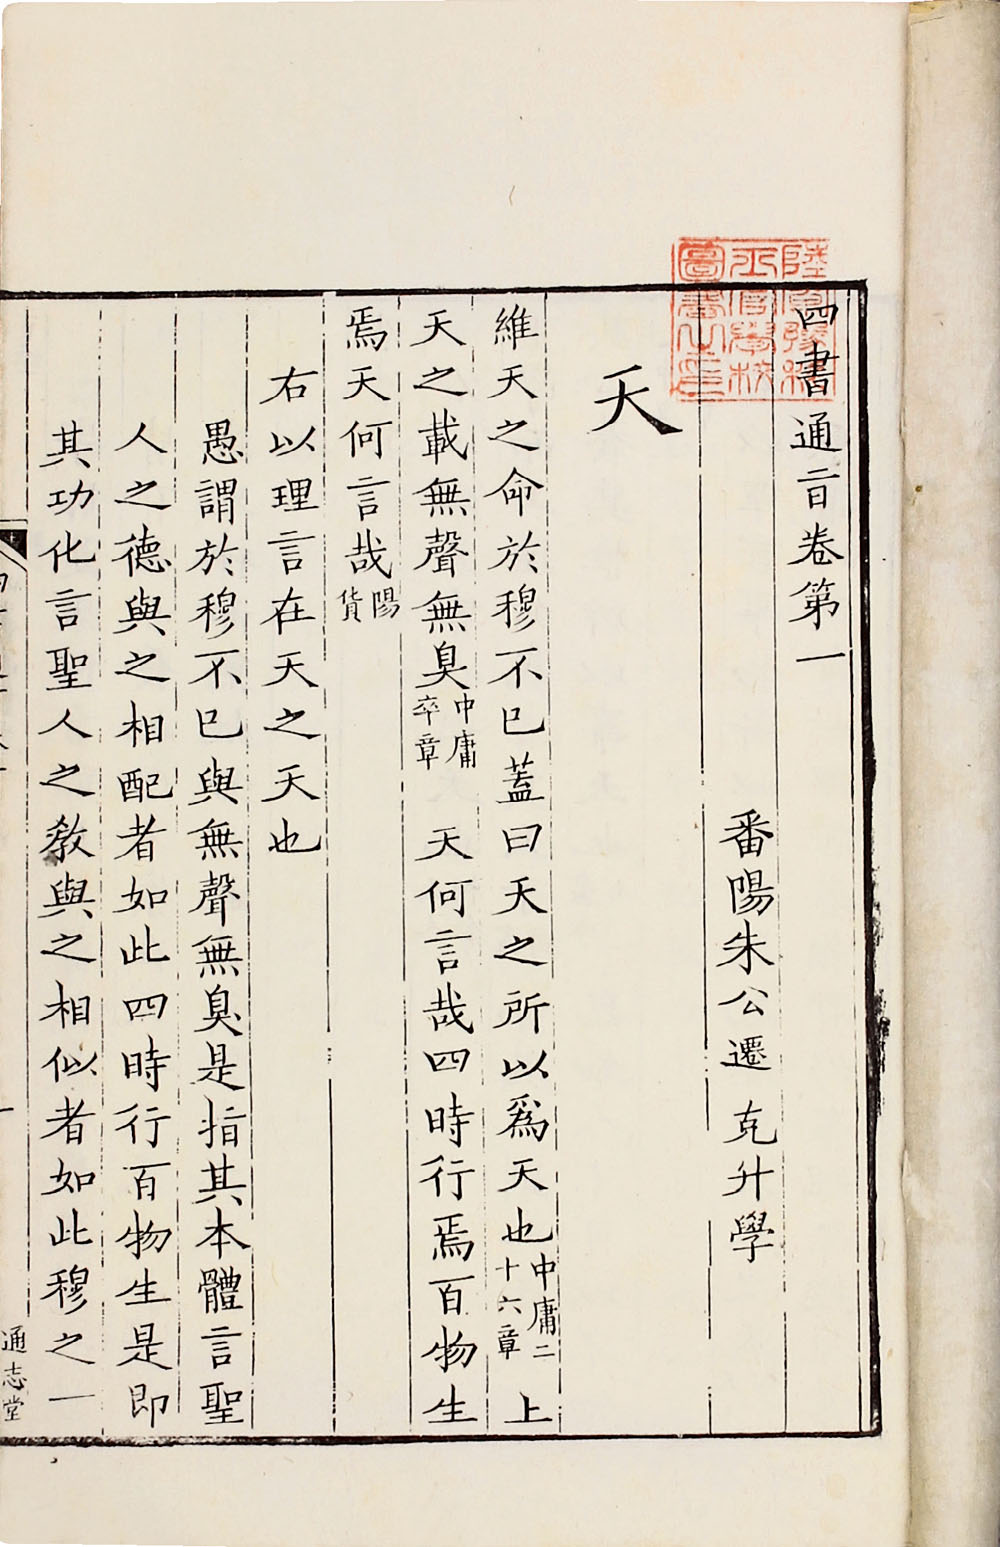 四書通旨卷第一
番陽朱公遷 克升學
天
維天之命於穆不已蓋曰天之所以爲天也中庸二十六章 上
天之載無聲無臭中庸卒章 天何言哉四時行焉百物生
焉天何言哉陽貨
右以理言在天之天也
愚謂於穆不已與無聲無臭是指其本體言聖
人之德與之相配者如此四時行百物生是即
其功化言聖人之敎與之相似者如此穆之一
通志堂